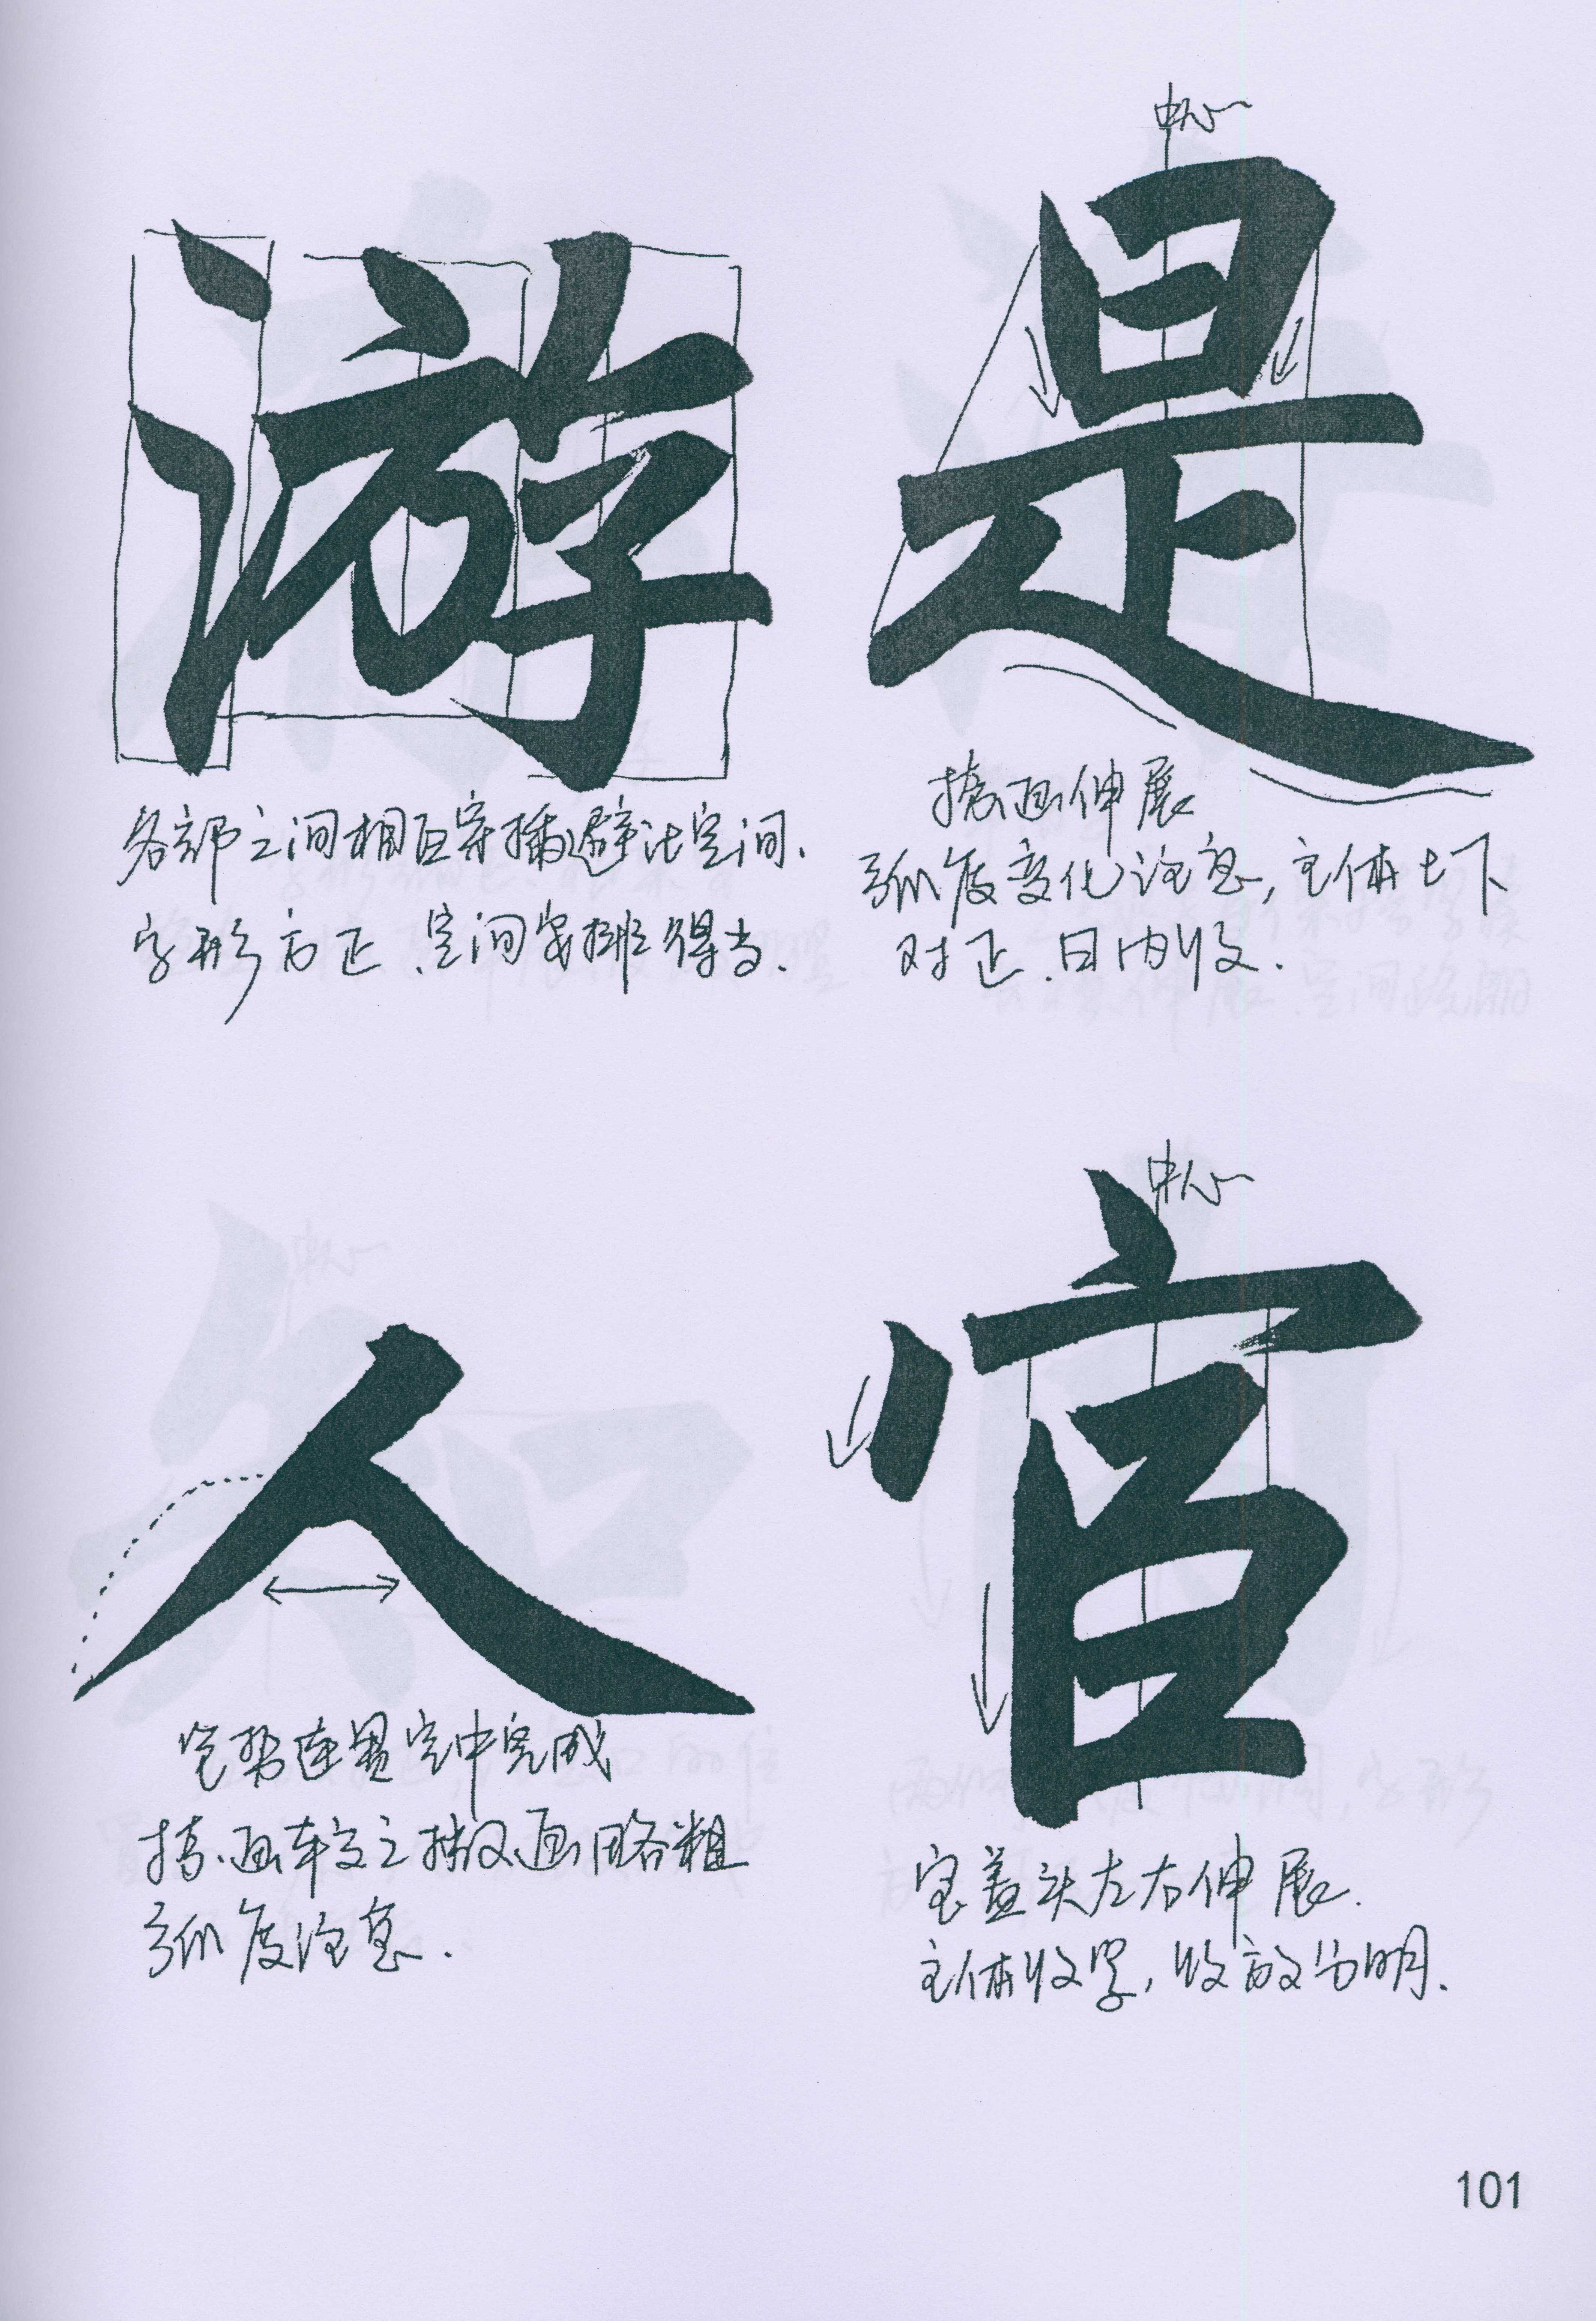 游
各部之间相互穿插避让空间.
字形方正.空间安排得当.
中心
是
捺画伸展
弧度变化注意,主体上下
对正.日内收.
人
笔势连贯空中完成
捺画较之撇画略粗
弧度注意.
中心
官
宝盖头左右伸展.
主体收紧,收放分明.
101